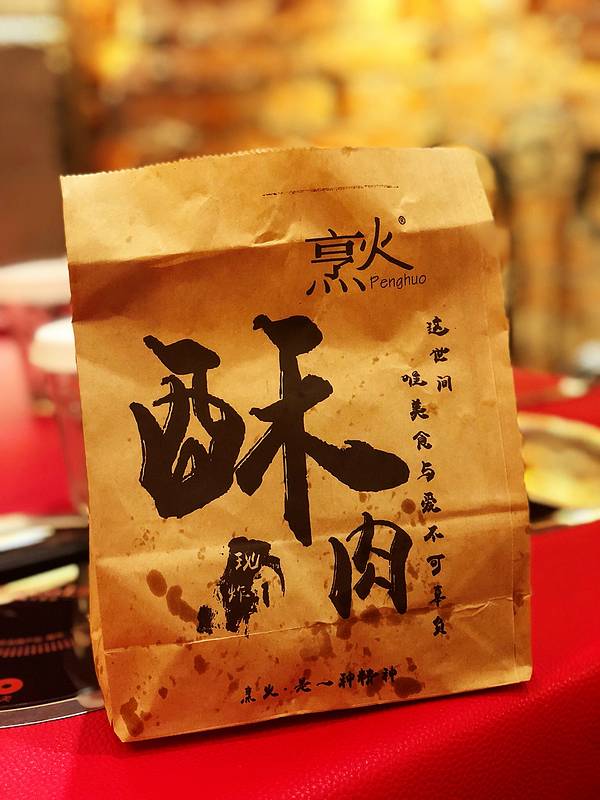 烹火®
Penghuo
酥肉
现炸
这世间
唯美食与爱不可辜负
烹火·是一种精神